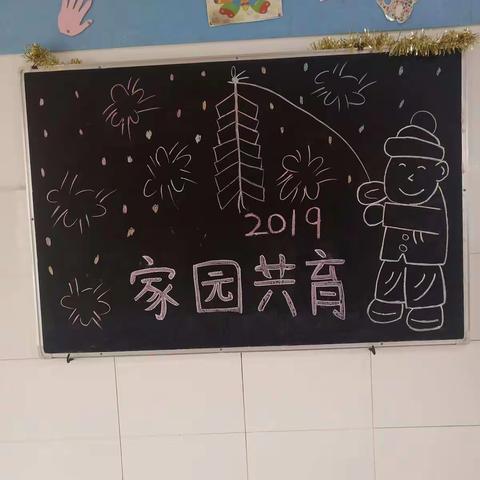 2019
家园共育